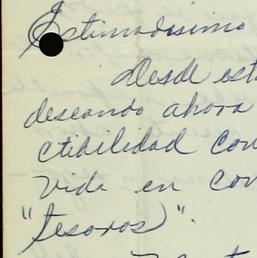 Estimadisimo
Desde est
deseando ahora
ctibilidad con
vida en con
"tesoros)".